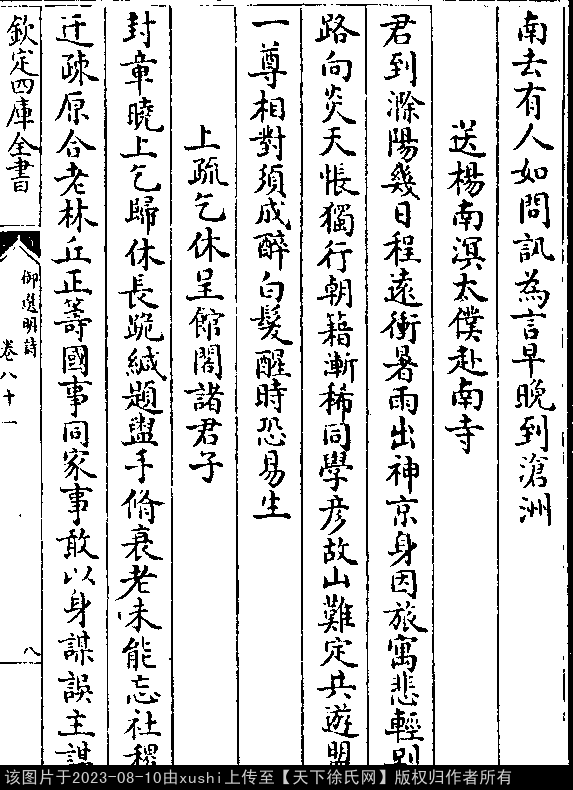 南去有人如問訊為言早晚到滄洲
送楊南溟太僕赴南寺
君到滁陽幾日程遠衝暑雨出神京身因旅寓悲輕别
路向炎天悵獨行朝籍漸稀同學彦故山難定共遊盟
一尊相對須成醉白髮醒時恐易生
上疏乞休呈館閣諸君子
封章曉上乞歸休長跪緘題盥手脩衰老未能忘社稷
迂疎原合老林丘正籌國事同家事敢以身謀誤主謀
欽定四庫全書
御選明詩
卷八十一
八
该图片于2023-08-10由xushi上传至【天下徐氏网】版权归作者所有